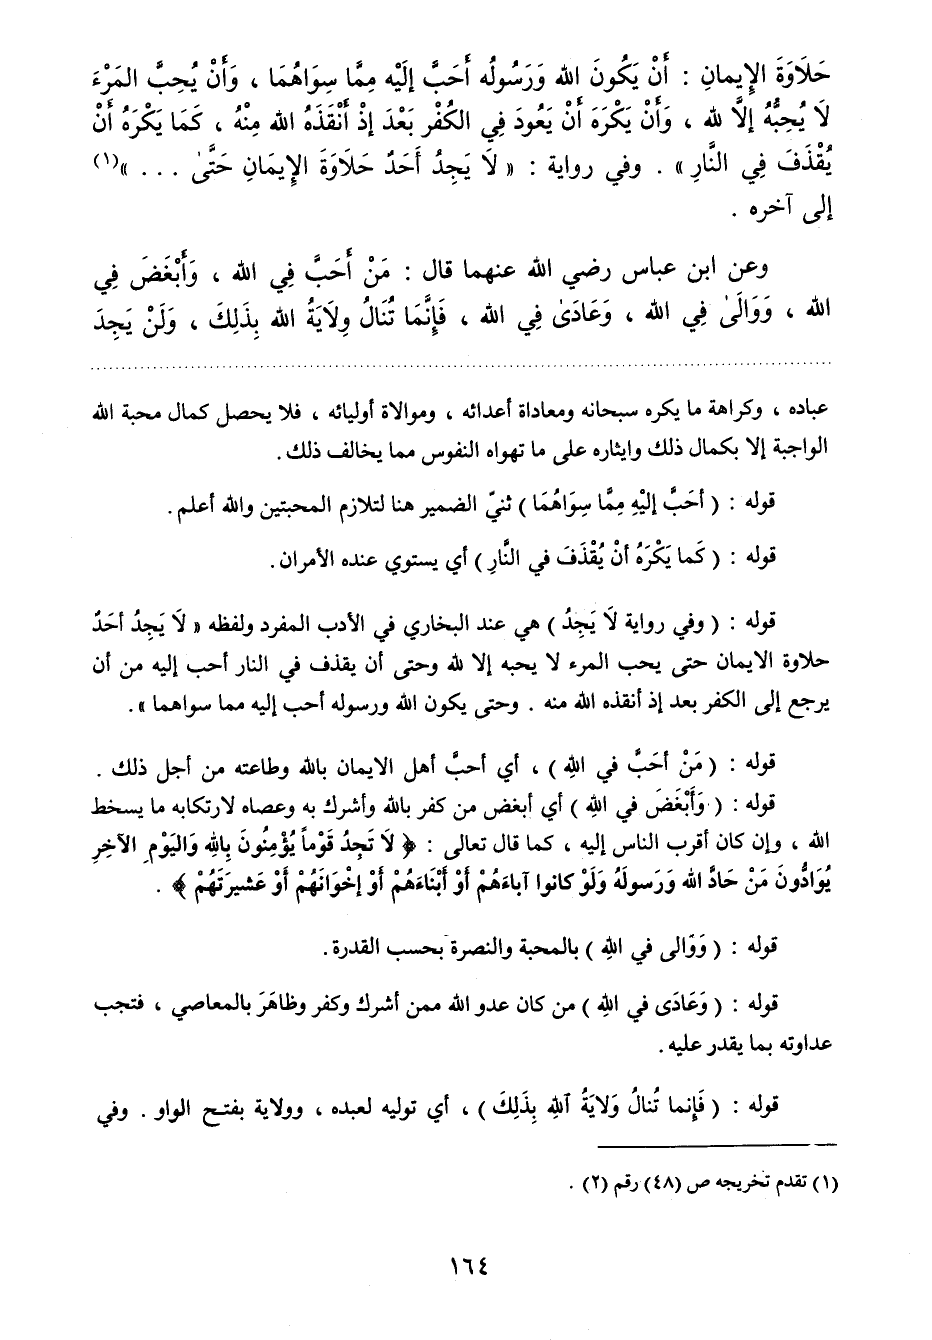 حَلَاوَةَ الإِيمانِ : أَنْ يَكُونَ الله وَرَسُولُه أَحَبَّ إلَيْه مِمَّا سِوَاهُمَا ، وَأَنْ يُحِبَّ المَرْءَ
لاَ يُحِبُّهُ إلاَّ لله ، وَأَنْ يَكْرَهَ أَنْ يَعُودَ فِي الكُفْرِ بَعْدَ إذْ أَنْقَذَهُ الله مِنْهُ ، كَمَا يَكْرَهُ أَنْ
يُقْذَفَ فِي النَّارِ » . وفي رواية : « لاَ يَجِدُ أَحَدٌ حَلَاوَةَ الإِيمَانِ حَتَّىٰ ... »(١)
إلى آخره .
وعن ابن عباس رضي الله عنهما قال : مَنْ أَحَبَّ فِي الله ، وَأَبْغَضَ فِي
الله ، وَوَالَىٰ فِي الله ، وَعَادَىٰ فِي الله ، فَإِنَّمَا تُنَالُ وِلاَيَةُ الله بِذَلِكَ ، وَلَنْ يَجِدَ
عباده ، وكراهة ما يكره سبحانه ومعاداة أعدائه ، وموالاة أوليائه ، فلا يحصل كمال محبة الله
الواجبة إلا بكمال ذلك وايثاره على ما تهواه النفوس مما يخالف ذلك .
قوله : ( أحَبَّ إلَيْهِ مِمَّا سِوَاهُمَا ) ثنيّ الضمير هنا لتلازم المحبتين والله أعلم .
قوله : ( كَما يَكْرَهُ أنْ يُقْذَفَ في النَّارِ ) أي يستوي عنده الأمران .
قوله : ( وفي رواية لاَ يَجِدُ ) هي عند البخاري في الأدب المفرد ولفظه « لاَ يَجِدُ أحَدٌ
حلاوة الايمان حتى يحب المرء لا يحبه إلا لله وحتى أن يقذف في النار أحب إليه من أن
يرجع إلى الكفر بعد إذ أنقذه الله منه . وحتى يكون الله ورسوله أحب إليه مما سواهما » .
قوله : ( مَنْ أحَبَّ في اللهِ ) ، أي أحبَّ أهل الايمان بالله وطاعته من أجل ذلك .
قوله : ( وَأَبْغَضَ في اللهِ ) أي أبغض من كفر بالله وأشرك به وعصاه لارتكابه ما يسخط
الله ، وإن كان أقرب الناس إليه ، كما قال تعالى : ﴿ لاَ تَجِدُ قَوْماً يُؤْمِنُونَ بِاللهِ وَاليَوْمِ الآخِرِ
يُوَادُّونَ مَنْ حَادَّ الله وَرَسولَهُ وَلَوْ كانوا آباءَهُمْ أَوْ أبْنَاءَهُمْ أَوْ إخْوَانَهُمْ أَوْ عَشيرَتَهُمْ ﴾ .
قوله : ( وَوَالى في اللهِ ) بالمحبة والنصرة بحسب القدرة .
قوله : ( وَعَادَى في اللهِ ) من كان عدو الله ممن أشرك وكفر وظاهَرَ بالمعاصي ، فتجب
عداوته بما يقدر عليه .
قوله : ( فَإنما تُنالُ وَلايَةُ ٱللهِ بِذَلِكَ ) ، أي توليه لعبده ، وولاية بفتح الواو . وفي
(١) تقدم تخريجه ص (٤٨) رقم (٢) .
١٦٤